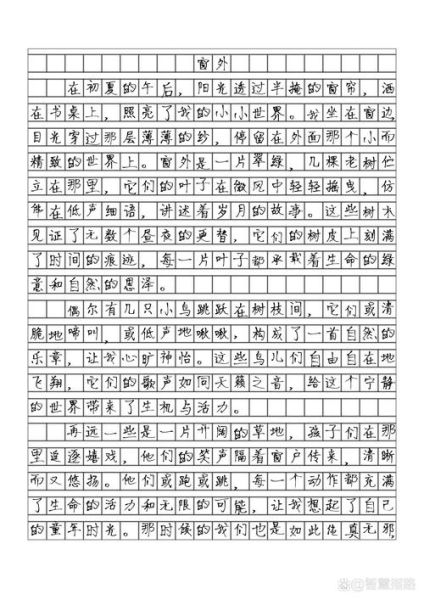 窗外
在初夏的午后，阳光透过半掩的窗帘，洒
在书桌上，照亮了我的小小世界。我坐在窗边，
目光穿过那层薄薄的纱，停留在外面那个小而
精致的世界上。窗外是一片翠绿，几棵老树伫
立在那里，它们的叶子在微风中轻轻摇曳，仿
佛在低声细语，讲述着岁月的故事。这些树木
见证了无数个昼夜的更替，它们的树皮上刻满
了时间的痕迹，每一片叶子都承载着生命的绿
意和自然的恩泽。
偶尔有几只小鸟跳跃在树枝间，它们或清
脆地啼叫，或低声地啾啾，构成了一首自然的
乐章，让我心旷神怡。这些鸟儿们自由自在地
飞翔，它们的歌声如同天籁之音，给这个宁静
的世界带来了生机与活力。
再远一些是一片开阔的草地，孩子们在那
里追逐嬉戏，他们的笑声隔着窗户传来，清晰
而又悠扬。他们或跑或跳，每一个动作都充满
了生命的活力和无限的可能，让我想起了自己
的童年时光。那时候的我们也是如此纯真无邪，